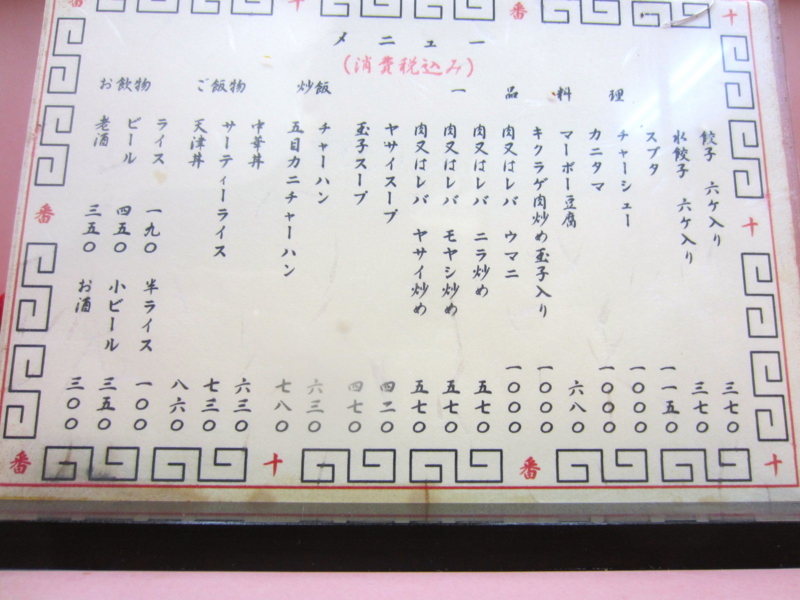 番 十 番 十
メニュー
(消費税込み)
一品料理
餃子 六ケ入り 三七〇
水餃子 六ケ入り 三七〇
スブタ 一一五〇
チャーシュー 一〇〇〇
カニタマ 一〇〇〇
マーボー豆腐 六八〇
キクラゲ肉炒め玉子入り 一〇〇〇
肉又はレバ ウマニ 一〇〇〇
肉又はレバ ニラ炒め 五七〇
肉又はレバ モヤシ炒め 五七〇
肉又はレバ ヤサイ炒め 五七〇
ヤサイスープ 四二〇
玉子スープ 四七〇
炒飯
チャーハン 六三〇
五目カニチャーハン 七八〇
ご飯物
中華丼 六三〇
サーティーライス 七三〇
天津丼 八六〇
お飲物
ライス 一九〇 半ライス 一〇〇
ビール 四五〇 小ビール 三五〇
老酒 三五〇 お酒 三〇〇
番
十
番 十 番 十